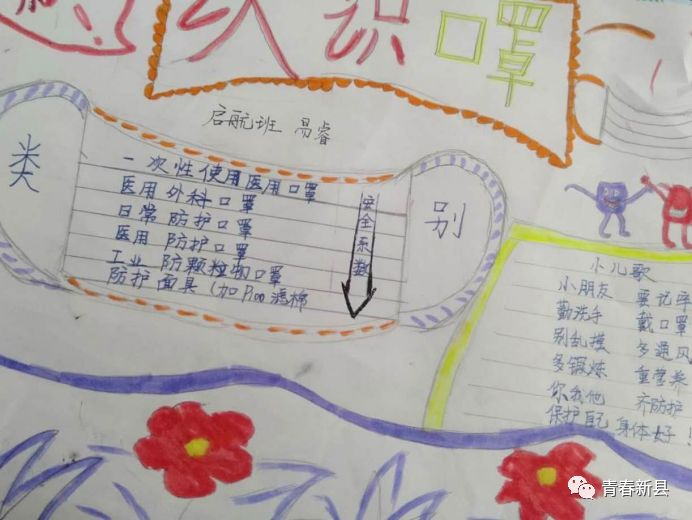 识罩
启航班 易睿
类别
一次性使用医用口罩
医用外科口罩
日常防护口罩
医用防护口罩
工业防颗粒物口罩
防护面具(加P100滤棉
安全系数
小儿歌
小朋友 要记牢
勤洗手 戴口罩
别乱摸 多通风
多锻炼 重营养
你我他 齐防护
保护自己 身体好!
青春新县